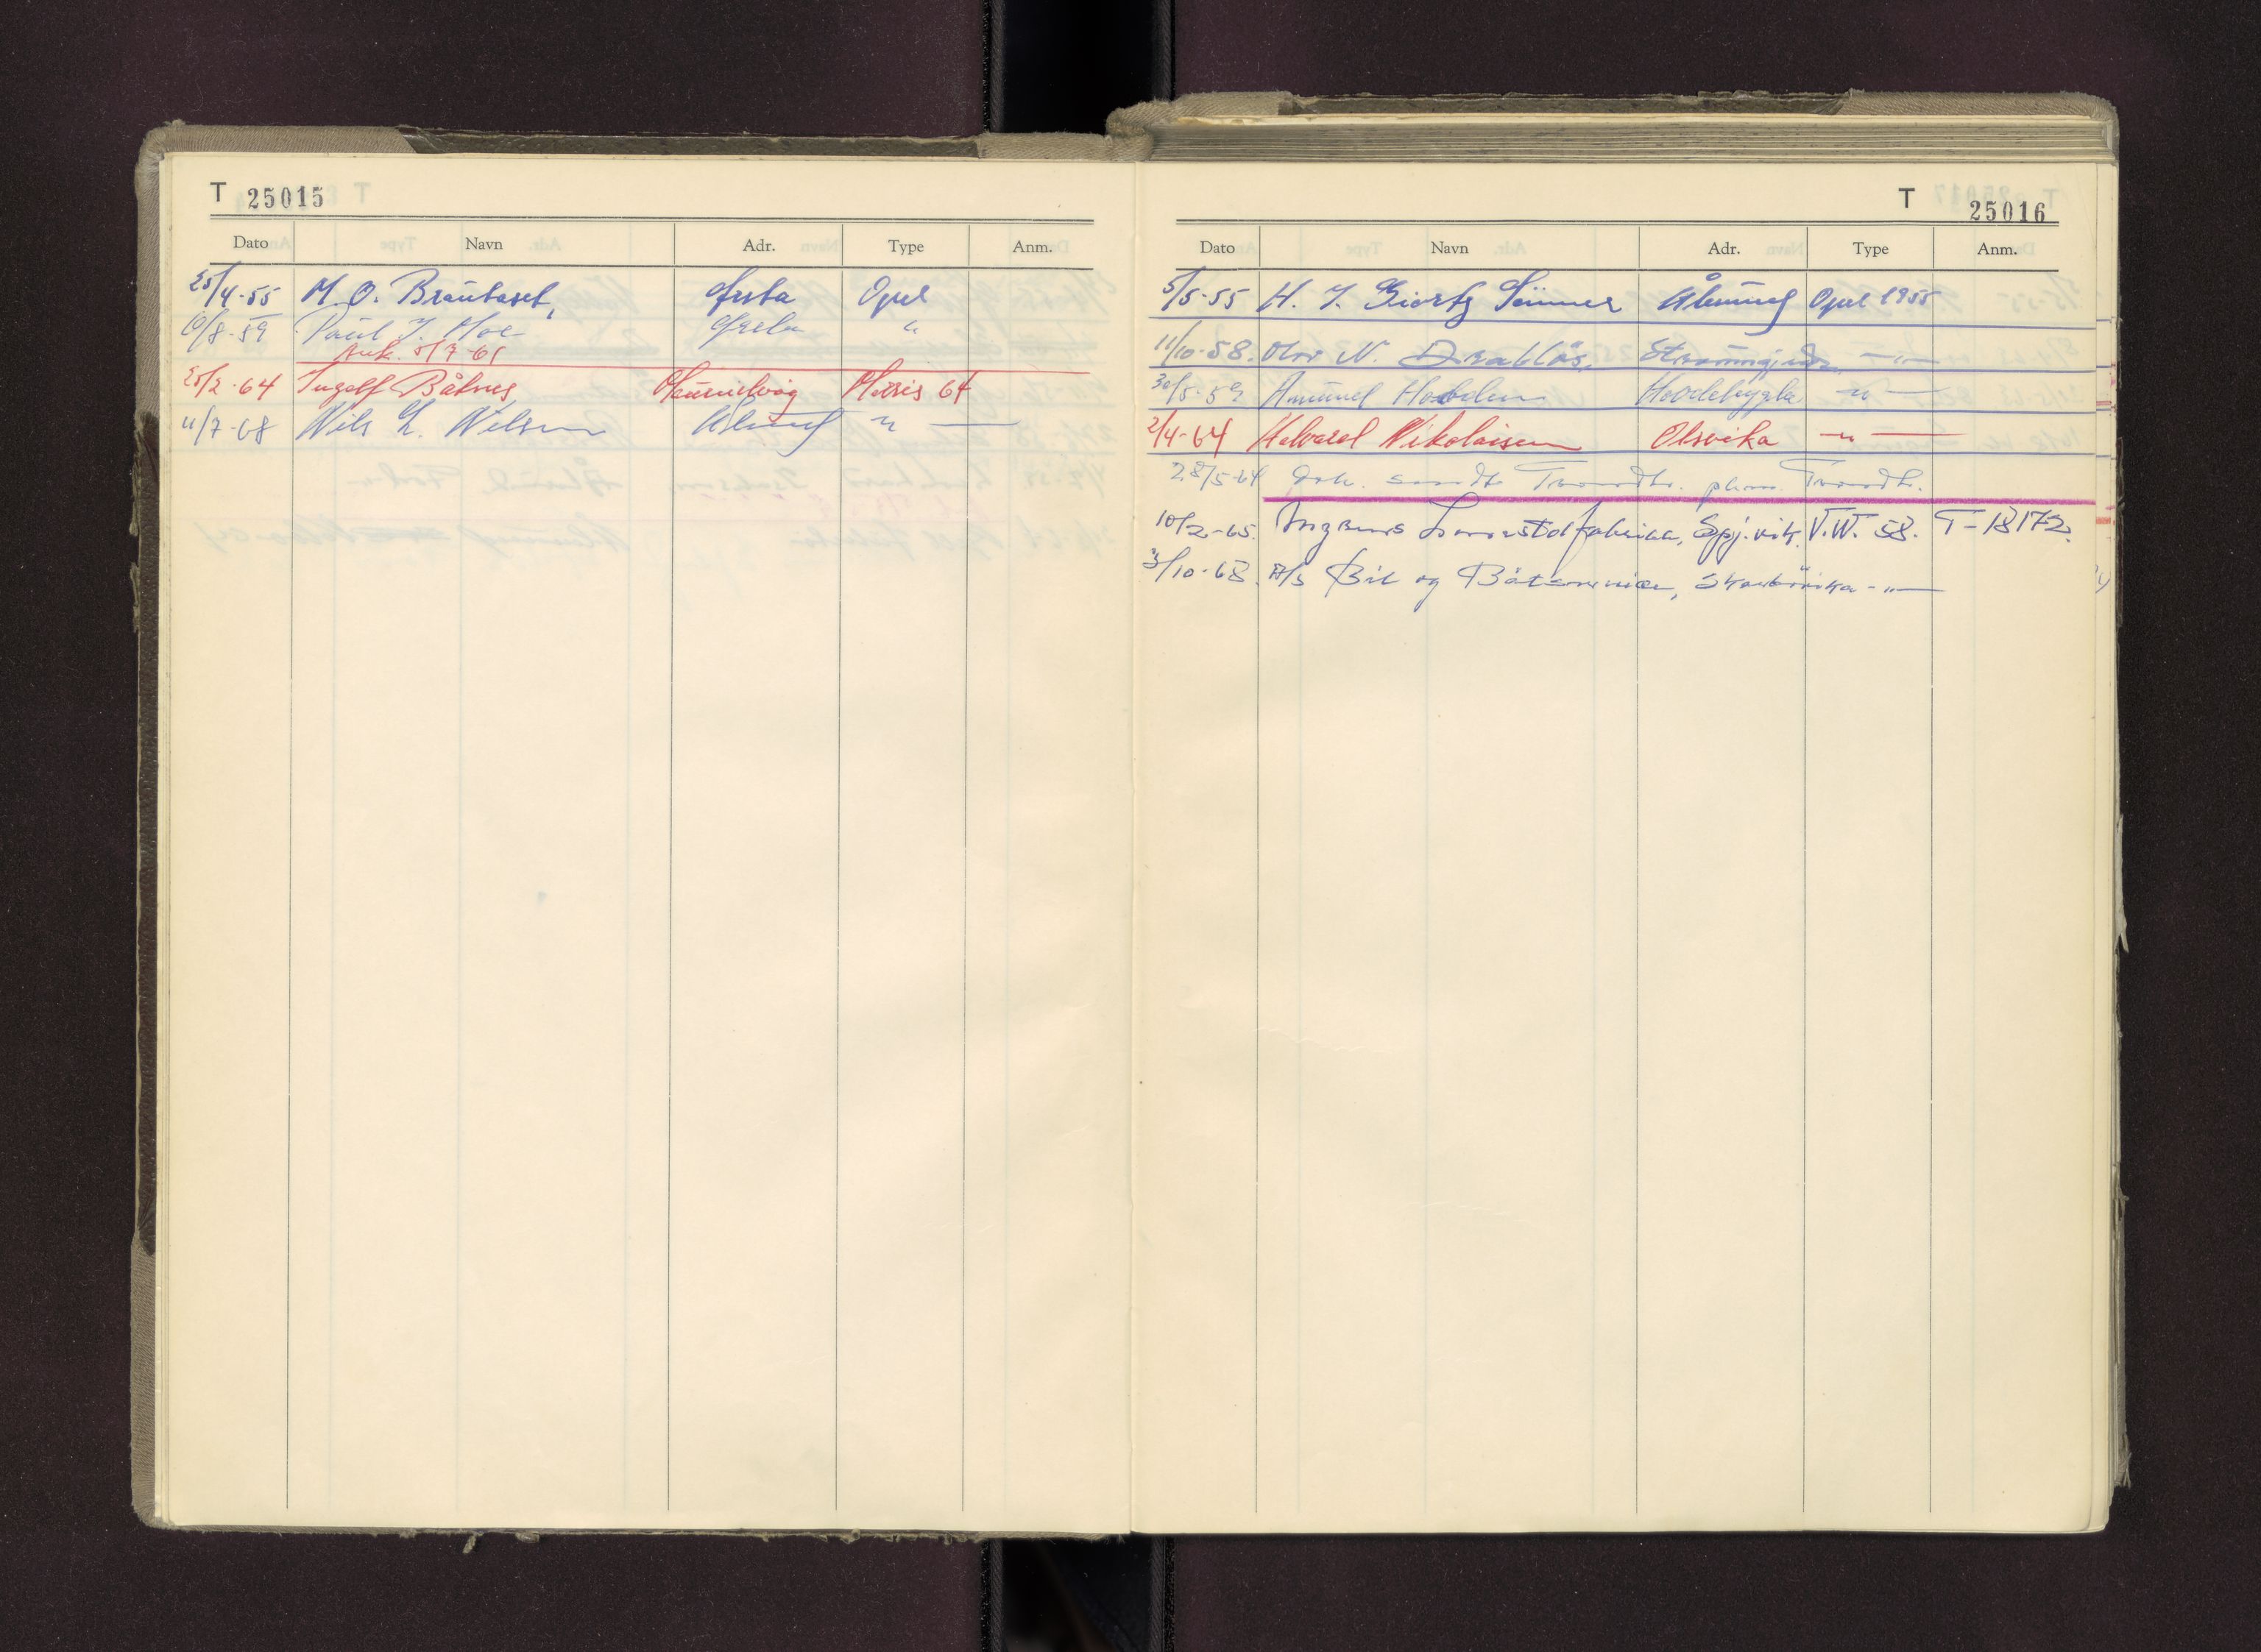 T 25015
Dato Navn Adr. Type Anm.
25/4-55 M. O. Brautaset, Ørsta Opel
10/8-59 Paul J. Moe Ørsta "
Avk. 5/7-61
25/2-64 Ingolf Båtnes Mauseidvåg Morris 64
11/7-68 Nils L. Nilsen Ålesund " —
T 25016
Dato Navn Adr. Type Anm.
5/5-55 H. J. Giørtz Ålesund Opel 1955
11/10-58. Olav N. Drabløs, —"—
30/5-59 Amund Hovdebygda —"—
2/4-64 Halvard Nikolaisen Olsvika —"—
28/5-64 Dok. sendt Trondh. Trondh.
10/2-65. Lenestolfabrikk, Spj.vik. V.W. 58. T-18172.
3/10-68. A/S Bil og Båtservice, Skarbøvika -"—